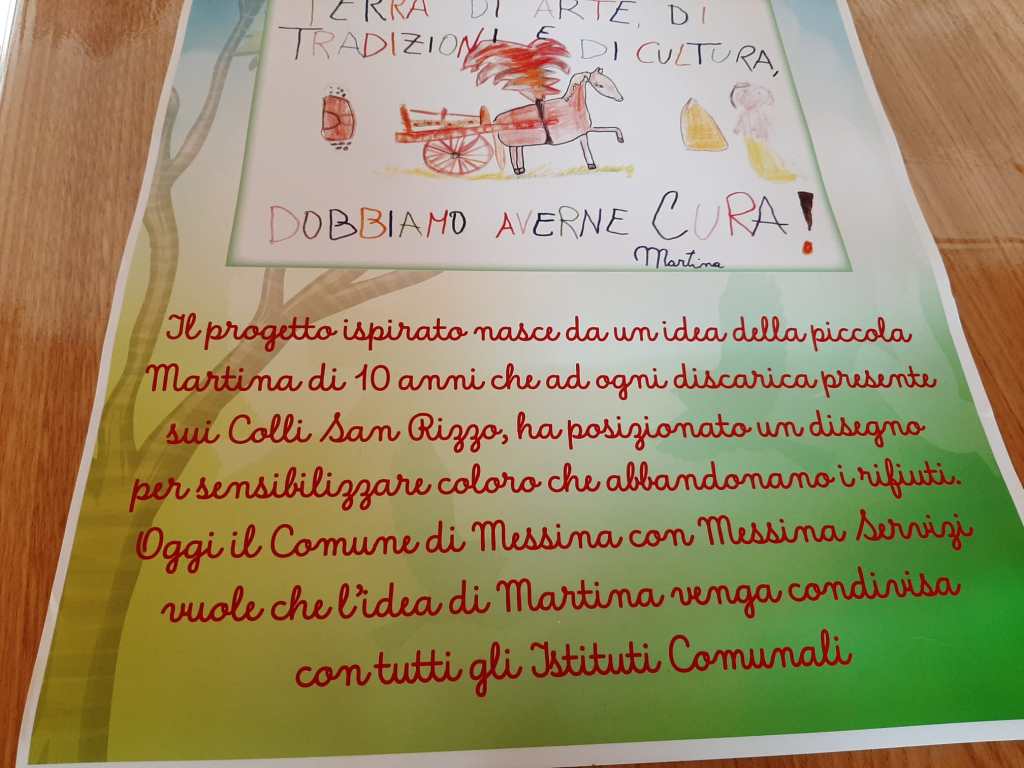 TERRA DI ARTE, DI
TRADIZIONI E DI CULTURA,
DOBBIAMO AVERNE CURA!
Martina
Il progetto ispirato nasce da un idea della piccola
Martina di 10 anni che ad ogni discarica presente
sui Colli San Rizzo, ha posizionato un disegno
per sensibilizzare coloro che abbandonano i rifiuti.
Oggi il Comune di Messina con Messina Servizi
vuole che l'idea di Martina venga condivisa
con tutti gli Istituti Comunali